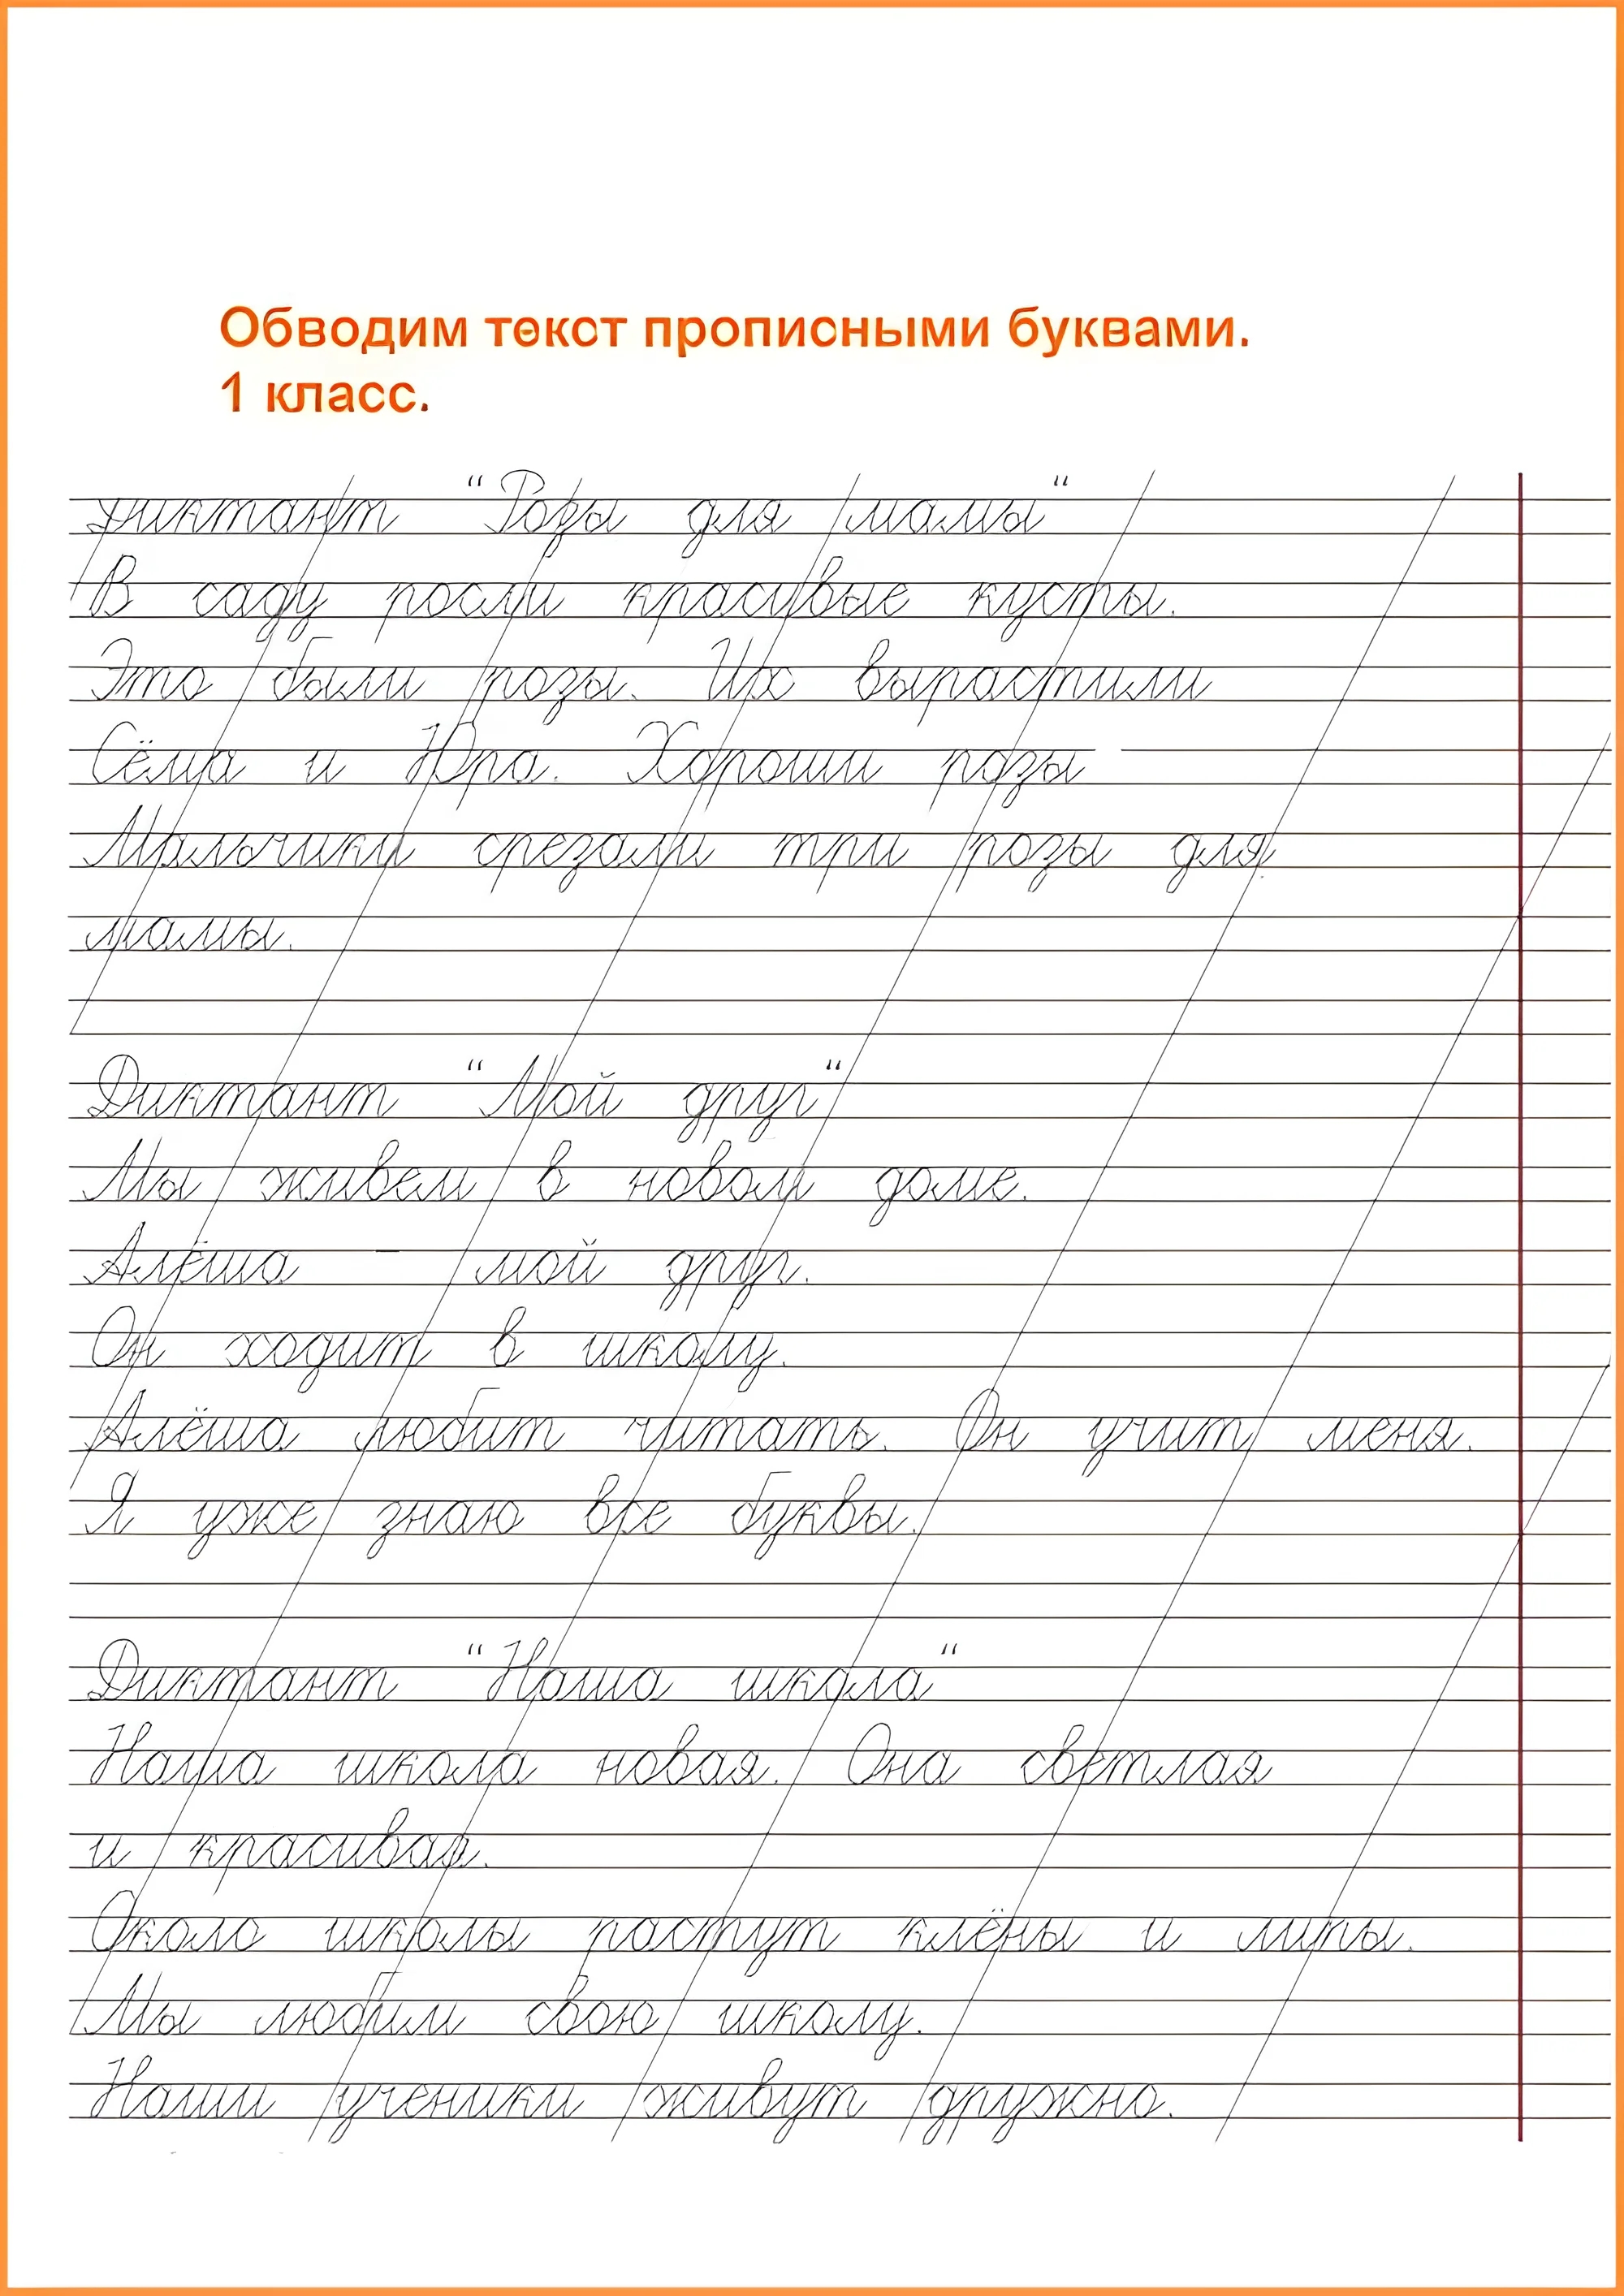 Обводим текст прописными буквами.
1 класс.
Диктант "Розы для мамы"
В саду росли красивые кусты.
Это были розы. Их вырастили
Сёма и Юра. Хороши розы
Мальчики срезали три розы для
мамы.
Диктант "Мой друг"
Мы живем в новом доме.
Алёша - мой друг.
Он ходит в школу.
Алёша любит читать. Он учит меня.
Я уже знаю все буквы.
Диктант "Наша школа"
Наша школа новая. Она светлая
и красивая.
Около школы растут клёны и липы.
Мы любим свою школу.
Наши ученики живут дружно.